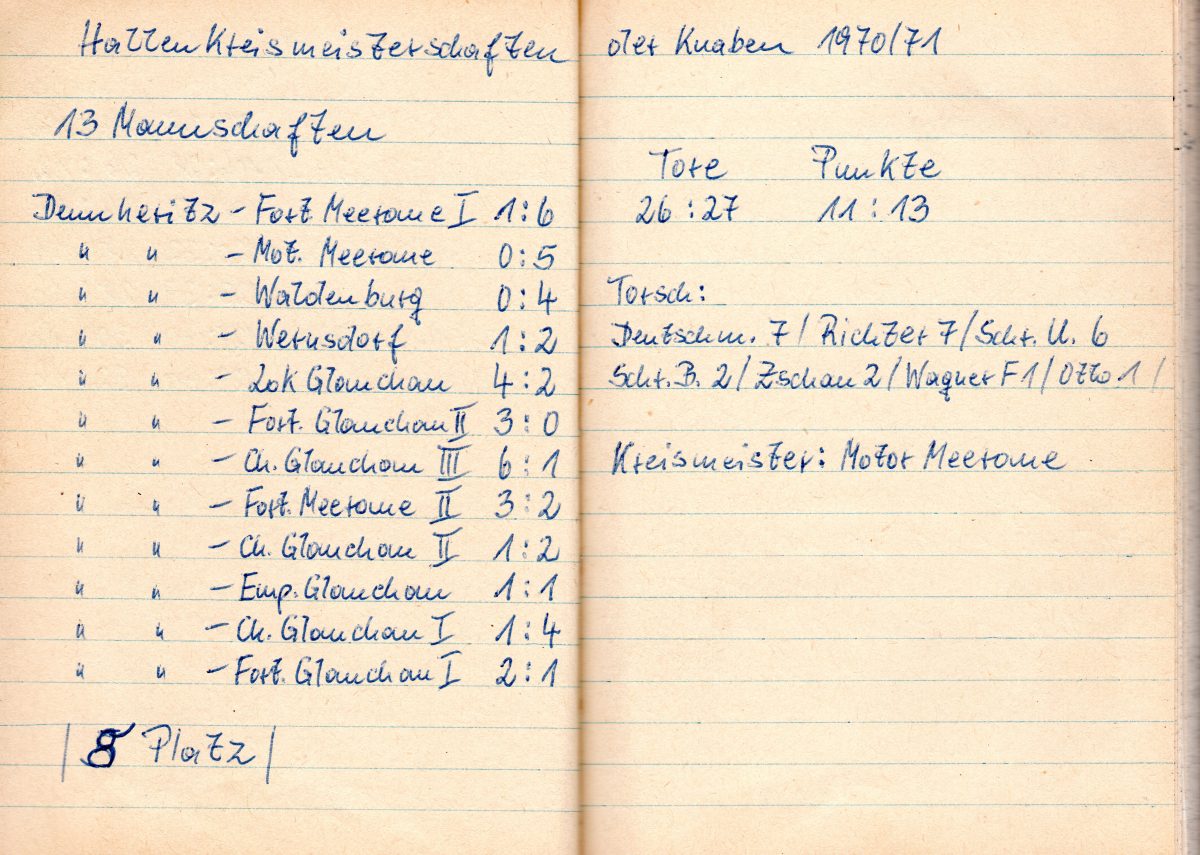 Hallenkreismeisterschaften der Knaben 1970/71
13 Mannschaften
Tore Punkte
26:27 11:13
Dennheritz - Fort. Meerane I 1:6
" " - Mot. Meerane 0:5
" " - Waldenburg 0:4
" " - Wernsdorf 1:2
" " - Lok Glauchau 4:2
" " - Fort. Glauchau II 3:0
" " - Ch. Glauchau III 6:1
" " - Fort. Meerane II 3:2
" " - Ch. Glauchau II 1:2
" " - Emp. Glauchau 1:1
" " - Ch. Glauchau I 1:4
" " - Fort. Glauchau I 2:1
| 8 Platz |
Torsch:
Deutschm. 7/ Richter 7/ Schr. U. 6
Schr. B. 2/ Zschau 2/ Wagner F 1/ Otto 1/
Kreismeister: Motor Meerane